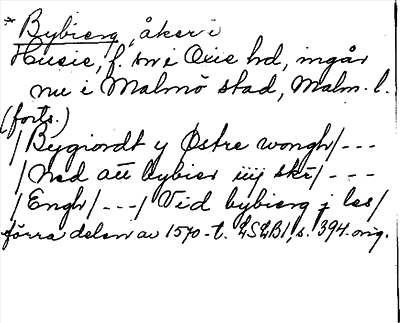 * Bybierg, åker i
Husie, f. sn i Oxie hd, ingår
nu i Malmö stad, Malm. l.
(forts.)
/Bygiordt y Østre wongh/---
/Ned att bybier iiij skr/---
/Engh/---/ Vid bybierg j las/
förra delen av 1570-t. LSLB1, s. 394. orig.